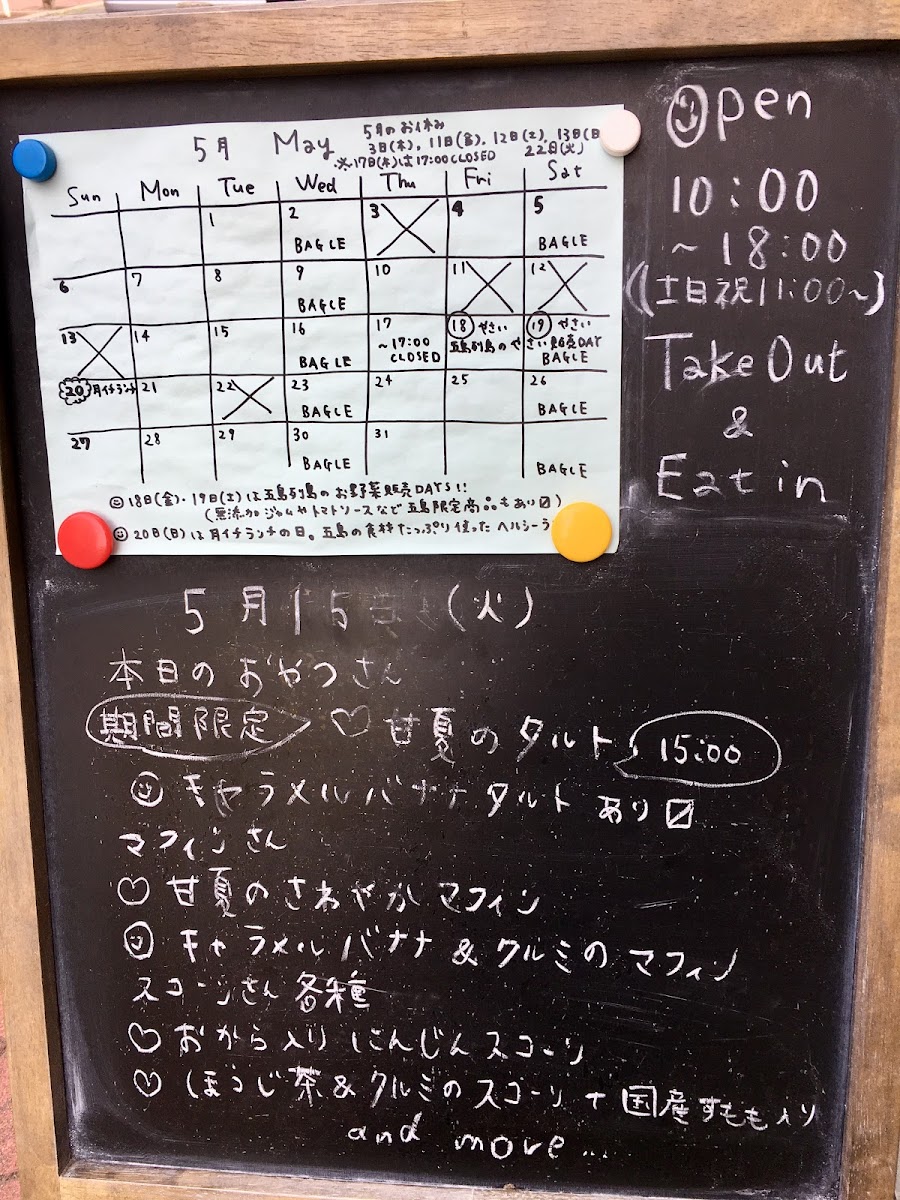 5月 May
5月のお休み
3日(木), 11日(金), 12日(土), 13日(日
22日(火)
※17日(木)は17:00 CLOSED
Sun Mon Tue Wed Thu Fri Sat
1 2 3 4 5
BAGLE BAGLE
6 7 8 9 10 11 12
BAGLE
13 14 15 16 17 18 やさい 19 やさい
~17:00 五島列島のやさい販売DAY
BAGLE CLOSED BAGLE
20 月イチランチ 21 22 23 24 25 26
BAGLE BAGLE
27 28 29 30 31
BAGLE BAGLE
18日(金)・19日(土)は五島列島のお野菜販売DAYS!!
(無添加ジャムやトマトソースなど五島限定商品もあり〼)
20日(日)は月イチランチの日。五島の食材たっぷり使ったヘルシーラ
Open
10:00
~18:00
(土日祝11:00~)
Take Out
&
Eat in
5月15日(火)
本日のおやつさん
期間限定 ♡ 甘夏のタルト 15:00
キャラメルバナナタルト あり〼
マフィンさん
♡ 甘夏のさわやかマフィン
キャラメルバナナ&クルミのマフィン
スコーンさん 各種
♡ おから入りにんじんスコーン
♡ ほうじ茶&クルミのスコーン + 国産すもも入り
and more...